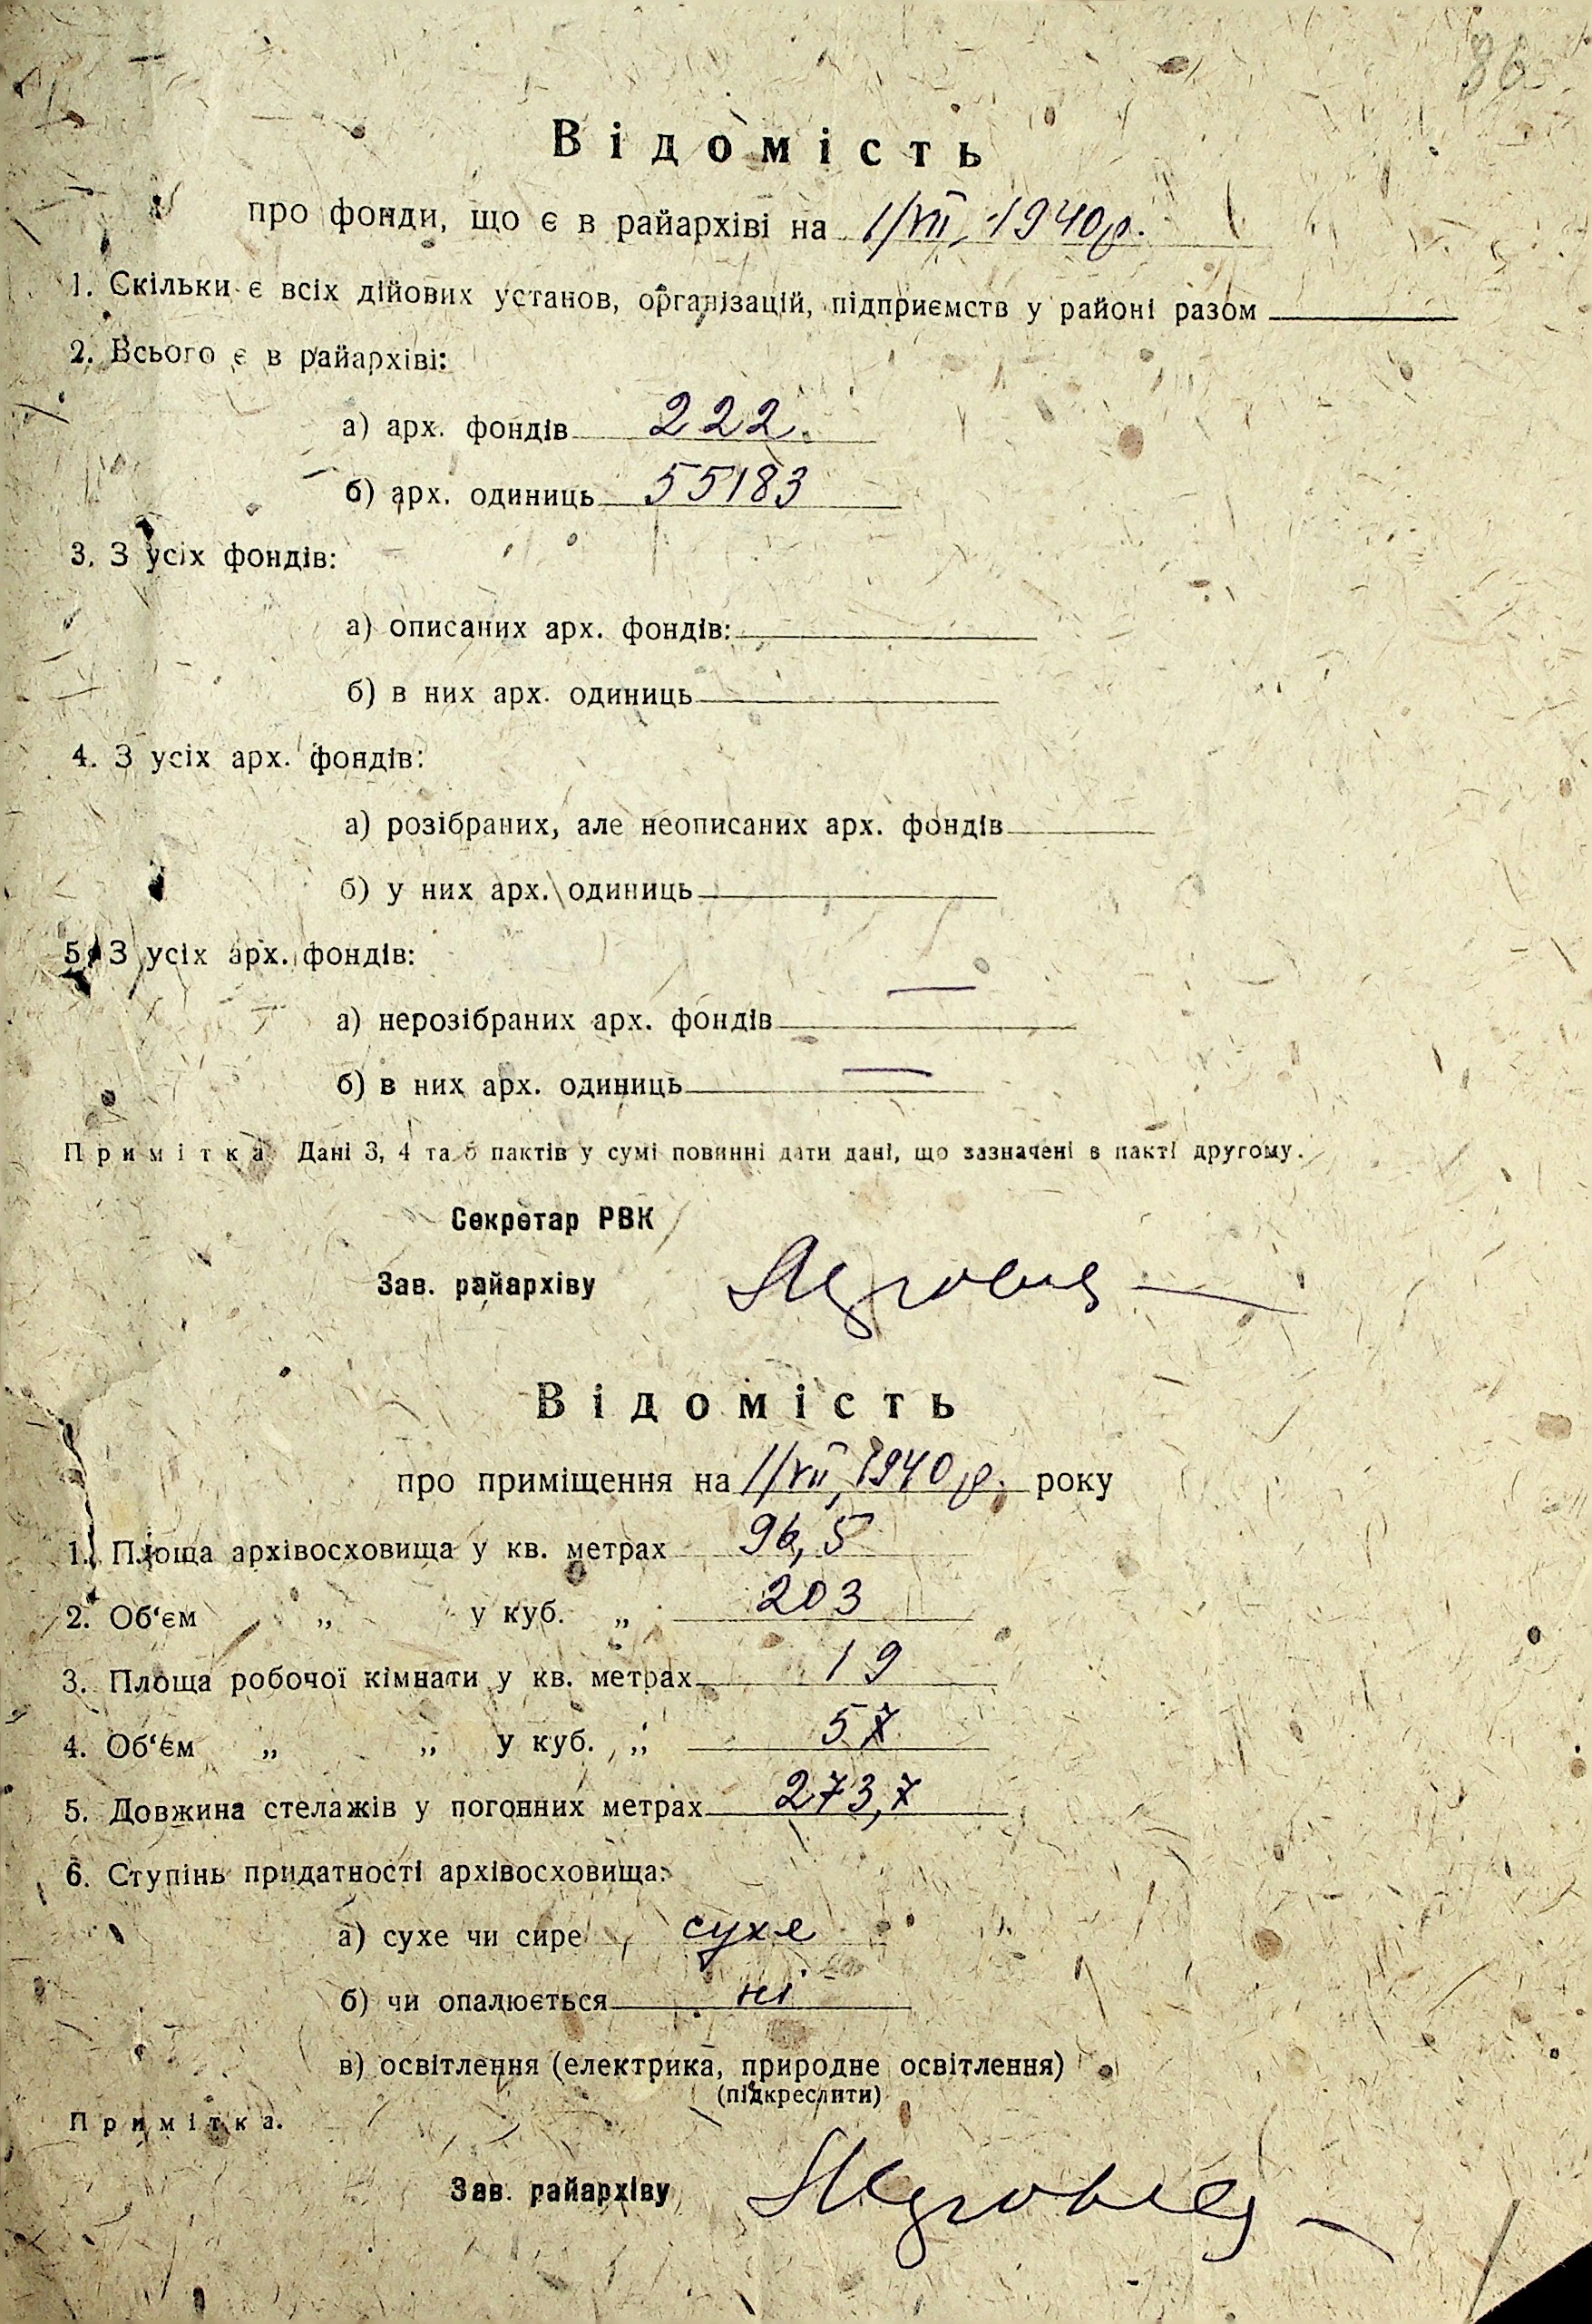 86
Відомість
про фонди, що є в райархіві на 1/VII, 1940 р.
1. Скільки є всіх дійових установ, організацій, підприємств у районі разом
2. Всього є в райархіві:
а) арх. фондів 222
б) арх. одиниць 55183
3. З усіх фондів:
а) описаних арх. фондів:
б) в них арх. одиниць
4. З усіх арх. фондів:
а) розібраних, але неописаних арх. фондів
б) у них арх. одиниць
5. З усіх арх. фондів:
а) нерозібраних арх. фондів —
б) в них арх. одиниць —
Примітка Дані 3, 4 та 5 пактів у сумі повинні дати дані, що зазначені в пакті другому.
Секретар РВК
Зав. райархіву
Відомість
про приміщення на 1/VII, 1940 р. року
1. Площа архівосховища у кв. метрах 96,5
2. Об'єм „ у куб. „ 203
3. Площа робочої кімнати у кв. метрах 19
4. Об'єм „ „ у куб. „ 57
5. Довжина стелажів у погонних метрах 273,7
6. Ступінь придатності архівосховища:
а) сухе чи сире сухе
б) чи опалюється ні
в) освітлення (електрика, природне освітлення)
(підкреслити)
Примітка.
Зав. райархіву